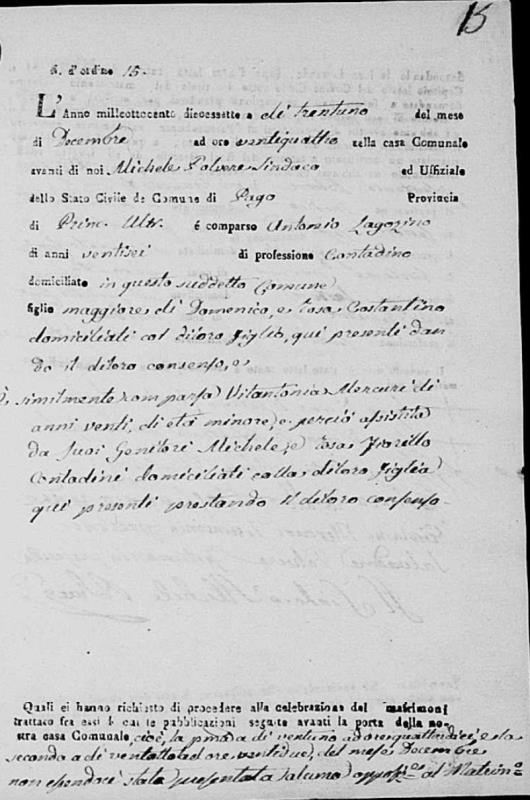 15
N. d'ordine 15.
L'Anno milleottocento dieciossette a dì trentuno del mese
di Decembre ad ore ventiquattro nella casa Comunale
avanti di noi Michele Polvere Sindaco ed Uffiziale
dello Stato Civile de Comune di Pago Provincia
di Princ. Ultr. é comparso Antonio Lagozino
di anni ventisei di professione Contadino
domiciliato in questo suddetto Comune
figlio maggiore di Domenico, e Rosa Costantino
domiciliati col di loro figlio, qui presenti dan
do il di loro consenso, e
È similmente comparsa Vitantonia Mercuri di
anni venti, di età minore, e perciò assistita
da suoi Genitori Michele, e Rosa
Contadini domiciliati colla di loro figlia
qui presenti prestando il di loro consenso.
Quali ci hanno richiesto di procedere alla celebrazione del matrimoni
trattato fra essi e cui le pubblicazioni seguite avanti la porta della no-
stra casa Comunale, cioè, la prima a dì ventuno ad ore quattordici, e la
seconda a dì ventotto ad ore ventidue, del mese Decembre
non essendoci stata presentata alcuna opposne al Matrimo